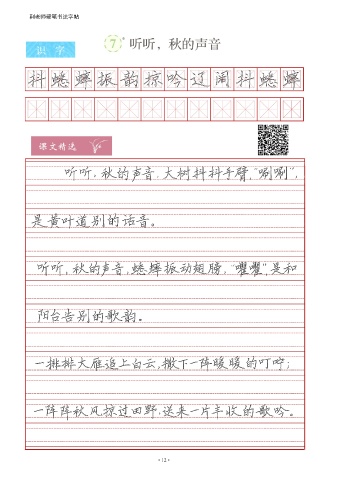 荆老师硬笔书法字帖
识 字
7* 听听，秋的声音
抖蟋蟀振韵掠吟辽阔抖蟋蟀
课文精选
听听，秋的声音，大树抖抖手臂，“唰唰”，
是黄叶道别的话音。
听听，秋的声音，蟋蟀振动翅膀，“㘗㘗”，是和
阳台告别的歌韵。
一排排大雁追上白云，撒下一阵暖暖的叮咛；
一阵阵秋风掠过田野，送来一片丰收的歌吟。
·12·